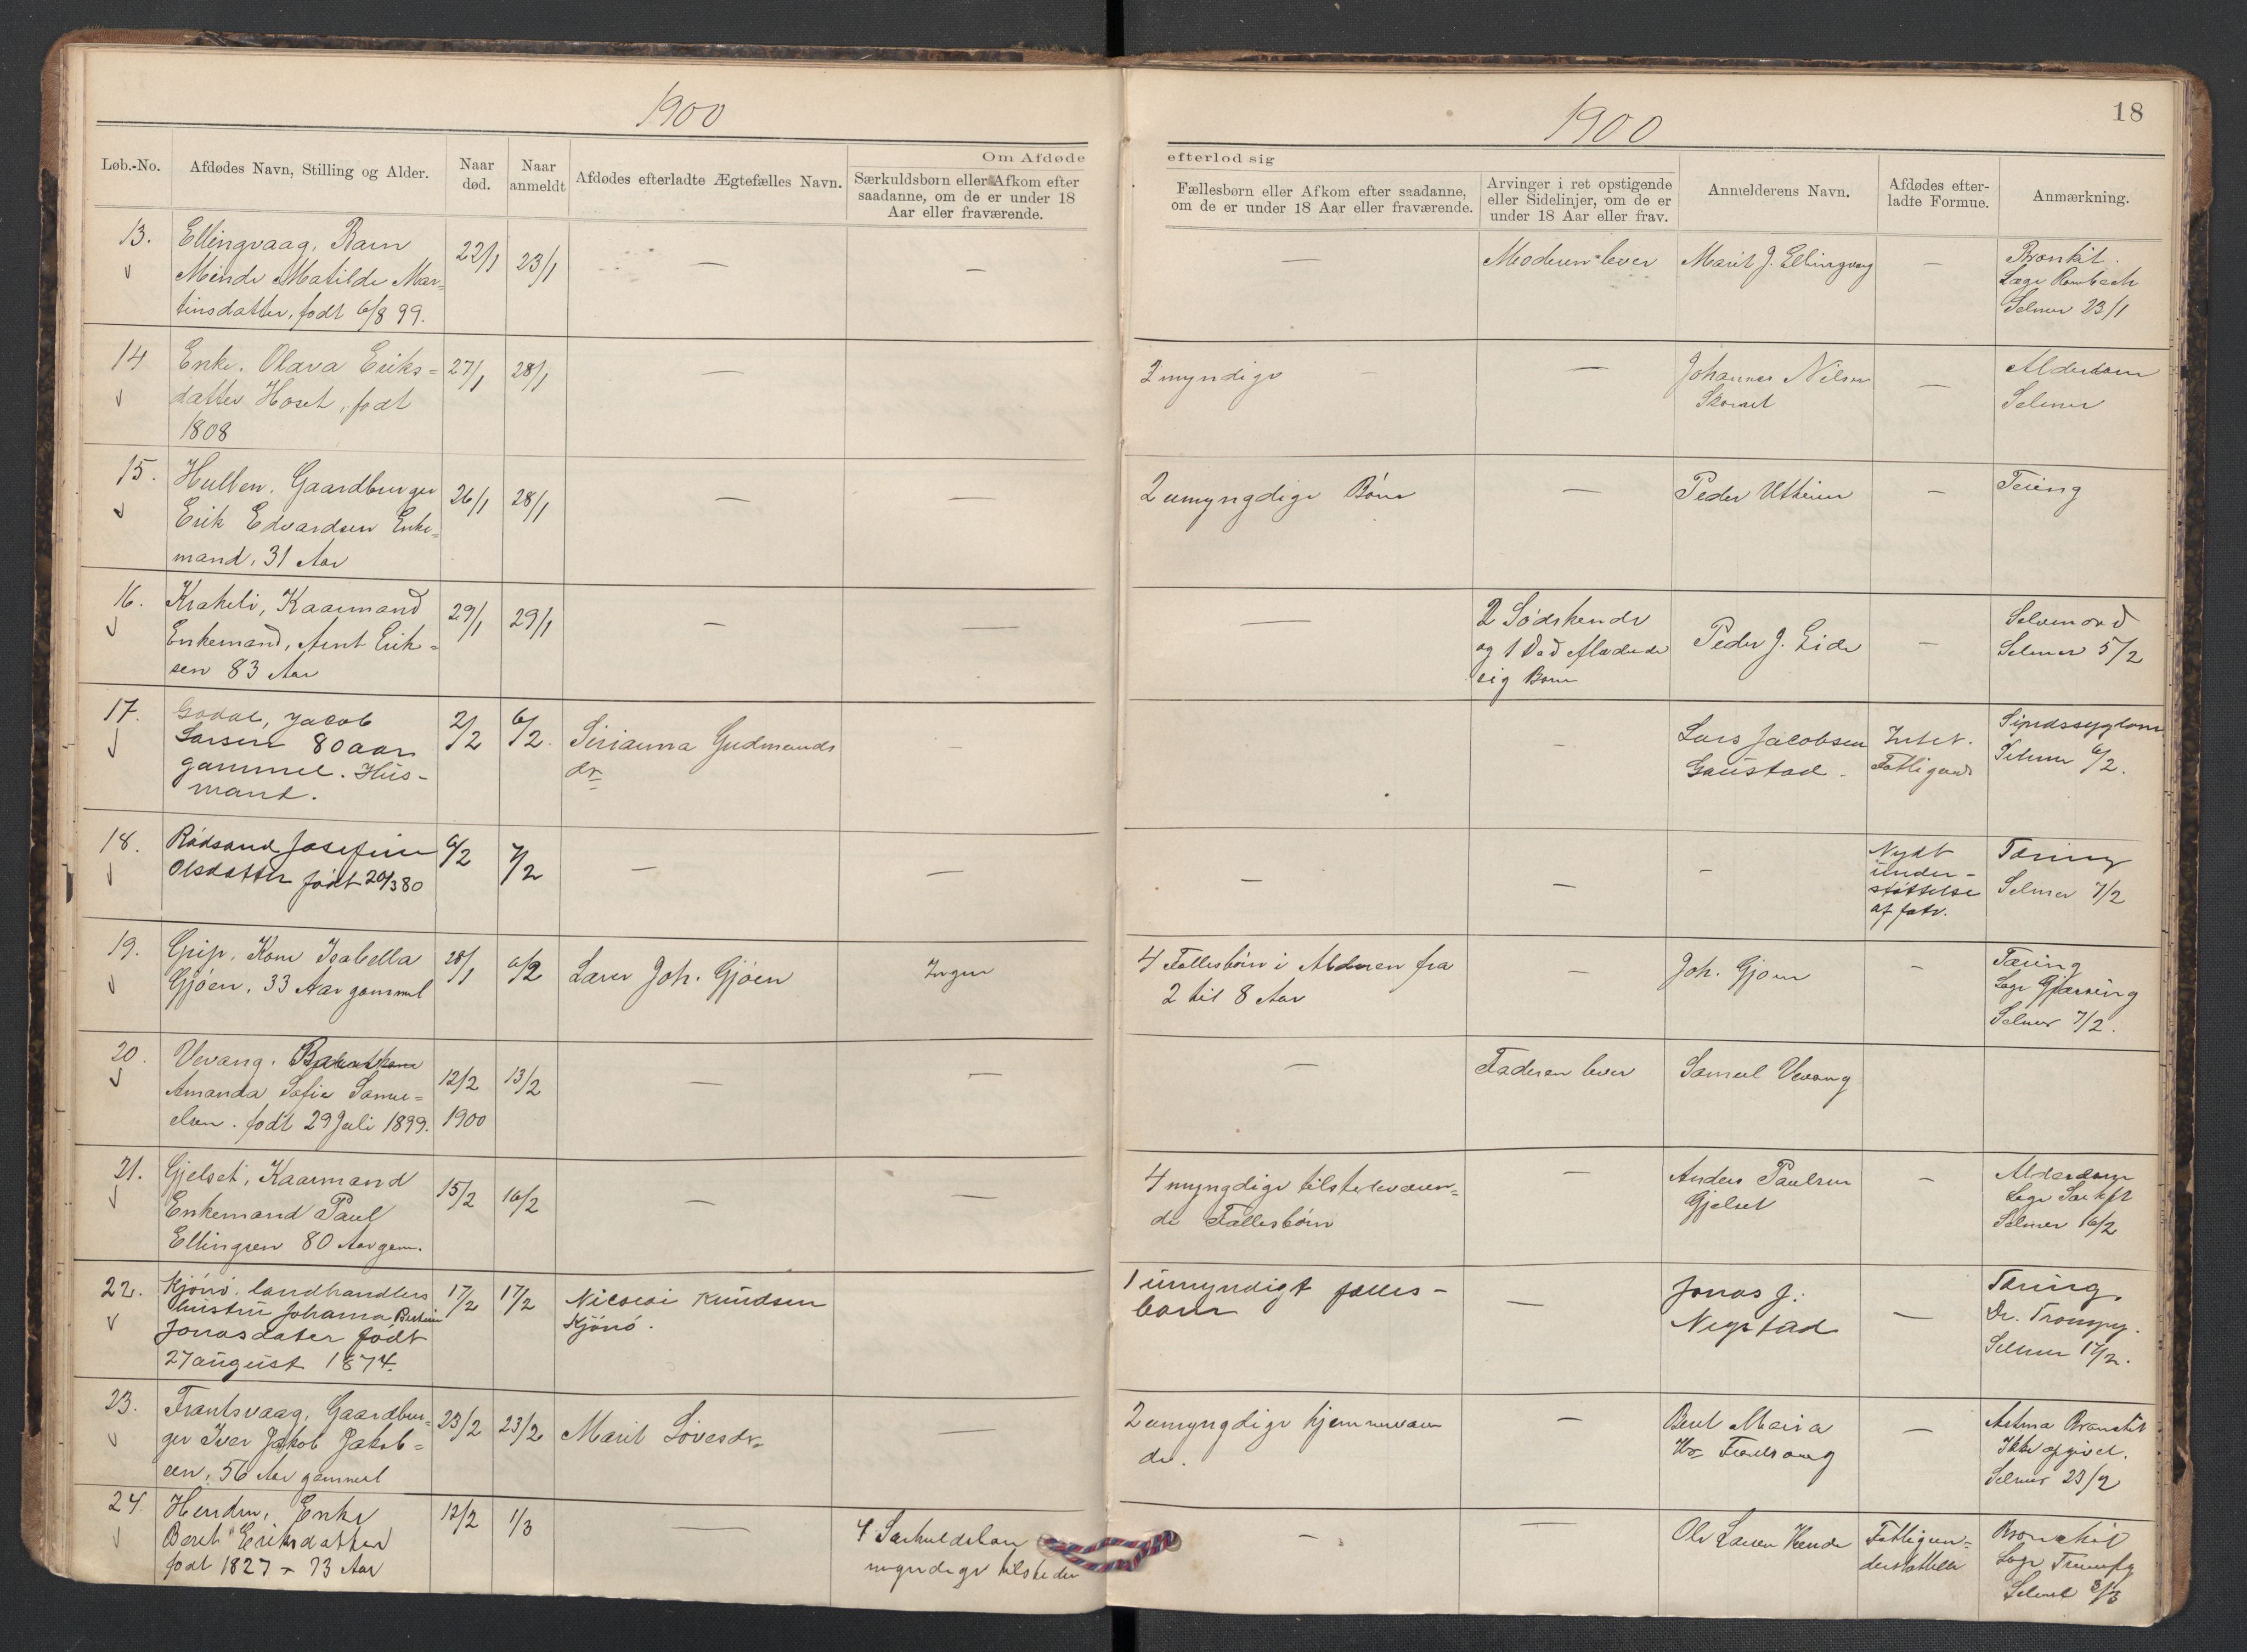 1900
1900
18
Løb.-No.
Afdødes Navn, Stilling og Alder.
Naar
død.
Naar
anmeldt
Om Afdøde
Afdødes efterladte Ægtefælles Navn.
Særkuldsbørn eller Afkom efter
saadanne, om de er under 18
Aar eller fraværende.
efterlod sig
Fællesbørn eller Afkom efter saadanne,
om de er under 18 Aar eller fraværende.
Arvinger i ret opstigende
eller Sidelinjer, om de er
under 18 Aar eller frav.
Anmelderens Navn.
Afdødes efter-
ladte Formue.
Anmærkning.
13.
Ellingvaag, Barn
Minda Matilde Mar=
tinsdatter, født 6/8 99.
22/1
23/1
—
—
—
Moderen lever
Marit J. Ellingvag
—
Bronkit.
Læge Rambech
Selmer 23/1
14
Enke. Olava Eriks=
datter Hoset, født
1808
27/1
28/1
—
2 myndige
—
Johannes Nilsen
—
Alderdom
Selmer
15.
Hullen. Gaardbruger
Erik Edvardsen Enke=
mand, 31 Aar
26/1
28/1
—
—
2 umyngdige Børn
—
Peder Utheim
—
Tæring
16.
Krakeli, Kaarmand
Enkemand, Arnt Erik=
sen 83 Aar
29/1
29/1
—
—
—
2 Sødskende
og 1 Død
sig Børn
Peder J. Eide
—
Selvmord
Selmer 5/2
17.
Godal, Jacob
Larsen 80 aar
gammel. Hus-
mand.
2/2
6/2.
Sirianna Gudmunds
dr
—
—
Lars Jacobsen
Gaustad.
Intet.
Selmer 6/2.
18.
Rødsand Josefine
Olsdatter født 20/3 80
6/2
7/2
—
—
—
—
-
Nydt
under-
støttelse
af fatv.
Tæring
Selmer 7/2
19.
Grip. Kone Isabella
Gjøen, 33 Aar gammel
28/1
6/2
Lars Joh. Gjøen
Ingen
4 Fællesbørn i Alderen fra
2 til 8 Aar
—
Joh. Gjøen
-
Tæring
Læge Gjærving
Selmer 7/2.
20.
Vevang.
Amanda Sofie Samu=
elsen. født 29 Juli 1899.
12/2
1900
13/2
—
—
—
Faderen lever
Samuel Vevang
21.
Gjelset, Kaarmand
Enkemand Paul
Ellingsen 80 Aar gam.
15/2
16/2
—
—
4 myngdige tilstedeværen=
de Fællesbørn
—
Anders Paulsen
Gjelset
-
Alderdom
Selmer 16/2
22.
Kjønø. landhandlers
hustru Johanna
Jonasdater født
27 august 1874.
17/2
17/2
Nicolai Knudsen
Kjønø.
1 umyndigt fælles-
barn
—
Jonas J.
Negstad
—
Tæring.
Selmer 17/2.
23.
Frantsvaag, Gaardbru=
ger Iver Jakob Jakob=
sen, 56 Aar gammel
23/2
23/2
Marit
—
2 umyngdige hjemmeværen
de.
—
—
Astma Bronchit
Ikke opgivet.
Selmer 23/2
24.
Henden, Enke
Beret Eriksdatter
født 1827 - 73 Aar
12/2
1/3
—
4 Særkuldsbørn
myndige tilstede
-
—
Ole Larsen Hende
Fattigun=
derstøttelse
Bronchit
Selmer 3/3